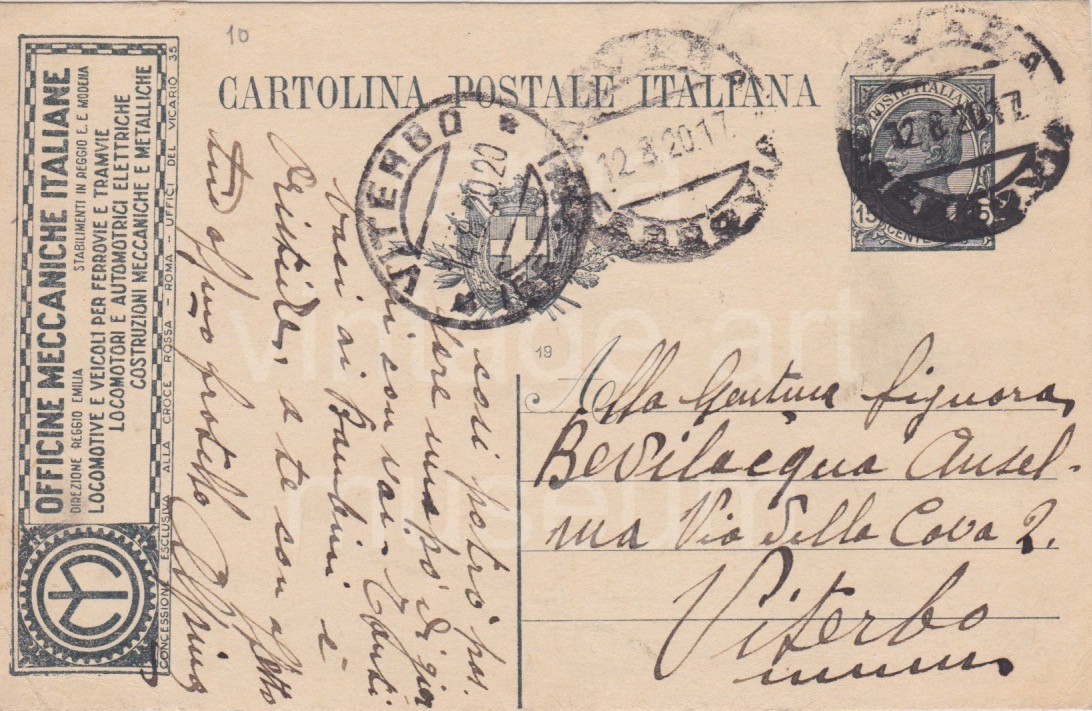 10
CARTOLINA POSTALE ITALIANA
OFFICINE MECCANICHE ITALIANE
DIREZIONE REGGIO EMILIA STABILIMENTI IN REGGIO E. E MODENA
LOCOMOTIVE E VEICOLI PER FERROVIE E TRAMVIE
LOCOMOTORI E AUTOMOTRICI ELETTRICHE
COSTRUZIONI MECCANICHE E METALLICHE
CONCESSIONE ESCLUSIVA ALLA CROCE ROSSA - ROMA - UFFICI DEL VICARIO 35
VITERBO
20.20
12.8.20.17
POSTE ITALIANE
15
CENTESIMI
12.8.20.17
19
Alla Gentma Signora
Bevilacqua Ansel-
ma Via della Cava 2.
Viterbo
così potrò pas.
sare un po' di gior
ni con voi - Tanti
baci ai Bambini e
Aristide, a te con affetto
tuo aff/mo fratello
vintage art
museum